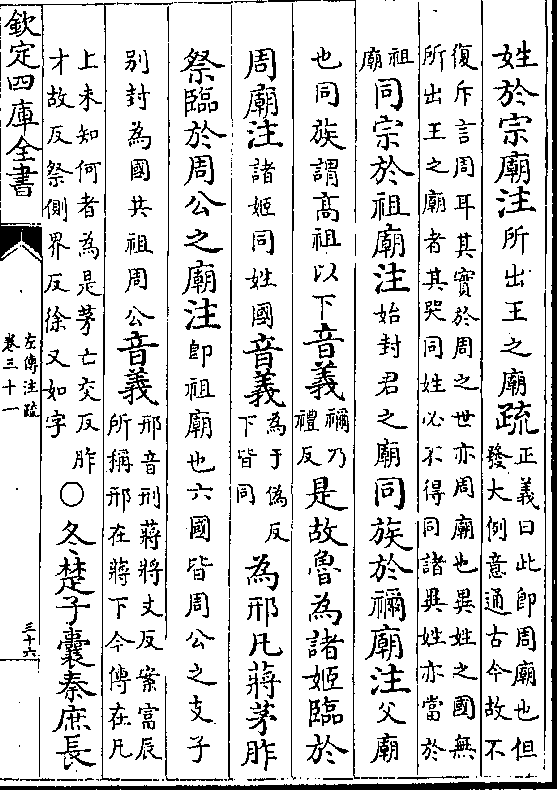 姓於宗廟注所出王之廟疏正義曰此即周廟也但
發大例意通古今故不
復斥言周耳其實於周之世亦周廟也異姓之國無
所出王之廟者其哭同姓必不得同諸異姓亦當於
祖
廟同宗於祖廟注始封君之廟同族於禰廟注父廟
也同族謂高祖以下音義禰乃
禮反是故魯為諸姬臨於
周廟注諸姬同姓國音義為于偽反
下皆同為邢凡蔣茅胙
祭臨於周公之廟注即祖廟也六國皆周公之支子
別封為國共祖周公音義邢音刑蔣將丈反案富辰
所稱邢在蔣下今傳在凡
上未知何者為是茅亡交反胙
才故反祭側界反徐又如字○冬楚子囊秦庶長
欽定四庫全書
左傳注疏
卷三十一
三十六